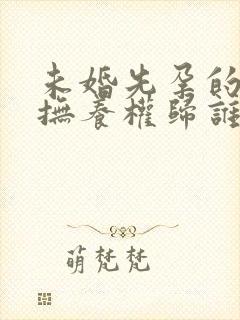 未婚先孕的
撫養權歸誰
萌梵梵